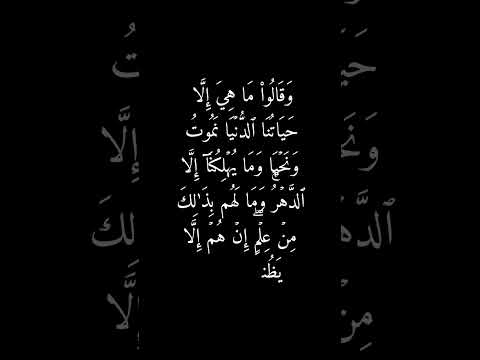 وَقَالُوا۟ مَا هِىَ إِلَّا
حَيَاتُنَا ٱلدُّنْيَا نَمُوتُ
وَنَحْيَا وَمَا يُهْلِكُنَآ إِلَّا
ٱلدَّهْرُ ۚ وَمَا لَهُم بِذَٰلِكَ
مِنْ عِلْمٍ ۖ إِنْ هُمْ إِلَّا
يَظُنـ